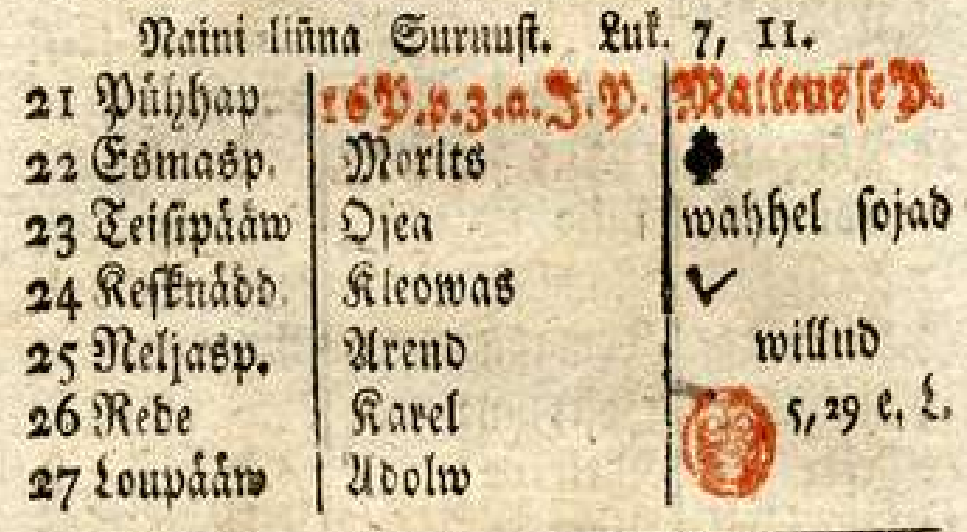 Naini liñna Surnust. Luk. 7, 11.
21 Pühhap. 16 P. p. 3. a. J. P. Matteusse P.
22 Esmasp. Morits
23 Teisipääw Ojea wahhel sojad
24 Kesknädd. Kleowas
25 Neljasp. Arend willud
26 Rede Karel 5, 29 e. L.
27 Loupääw Adolw